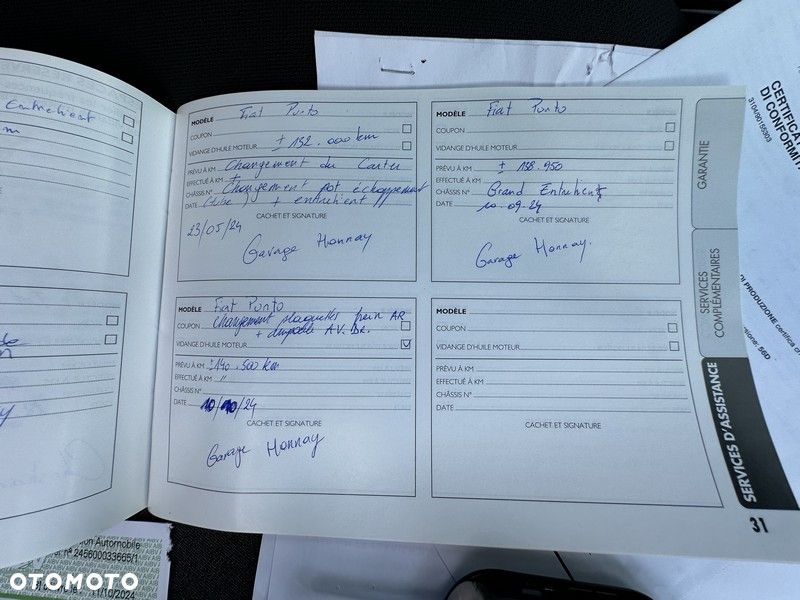 Entretient
km
MODÈLE Fiat Punto
COUPON
VIDANGE D'HUILE MOTEUR ± 152.000 km
PRÉVU À KM Changement du Carter
EFFECTUÉ À KM
CHÂSSIS N° Changement pot échappement
DATE + entretient //
CACHET ET SIGNATURE
23/05/24
Garage Honnay
MODÈLE Fiat Punto
COUPON
VIDANGE D'HUILE MOTEUR
PRÉVU À KM ± 158.950
EFFECTUÉ À KM
CHÂSSIS N° Grand Entretient
DATE 10.09.24
CACHET ET SIGNATURE
Garage Honnay.
MODÈLE Fiat Punto
COUPON changement plaquettes frein AR
+ ampoule AV. DR.
VIDANGE D'HUILE MOTEUR
PRÉVU À KM ± 140.500 km
EFFECTUÉ À KM "
CHÂSSIS N°
DATE 10/10/24
CACHET ET SIGNATURE
Garage Honnay
MODÈLE
COUPON
VIDANGE D'HUILE MOTEUR
PRÉVU À KM
EFFECTUÉ À KM
CHÂSSIS N°
DATE
CACHET ET SIGNATURE
GARANTIE
SERVICES COMPLÉMENTAIRES
SERVICES D'ASSISTANCE
31
310490155303
CERTIFICAT
DI CONFORMIT
DI PRODUZIONE certifica c
sione: 56D
on Automobile
n° 245600033665/1
11/10/2024
OTOMOTO